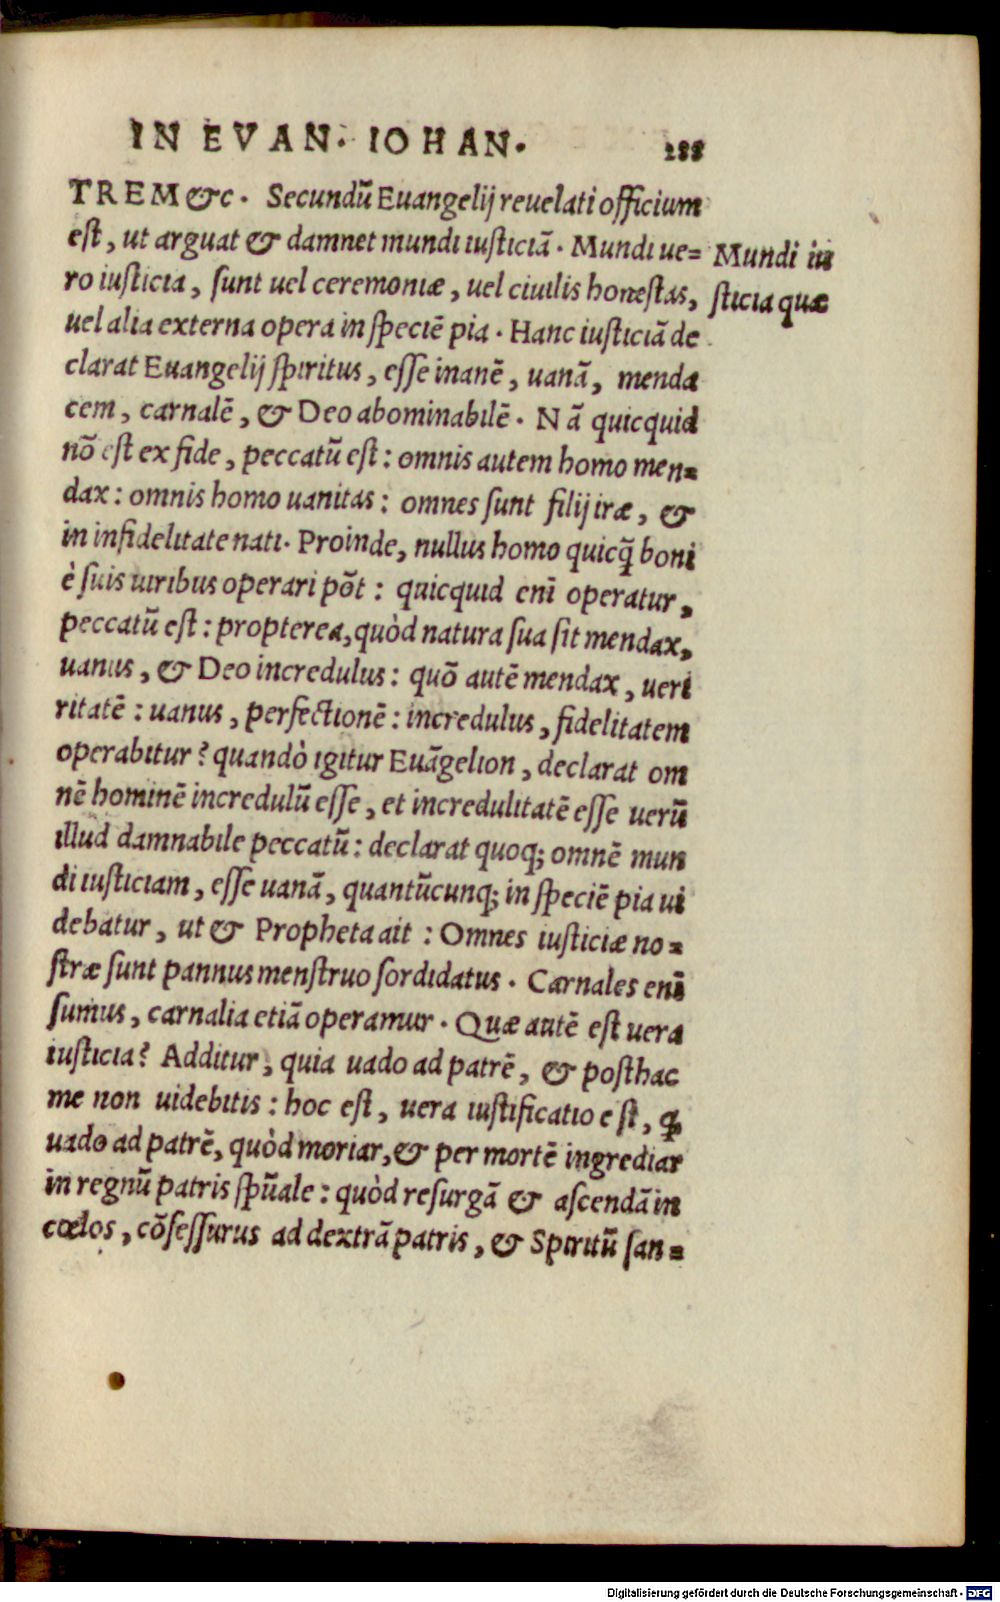 IN EVAN. IOHAN. 188
TREM &c. Secundũ Euangelij reuelati officium
est, ut arguat & damnet mundi iusticiã. Mundi ue=
ro iusticia, sunt uel ceremoniæ, uel ciuilis honestas,
uel alia externa opera in speciẽ pia. Hanc iusticiã de
clarat Euangelij spiritus, esse inanẽ, uanã, menda
cem, carnalẽ, & Deo abominabilẽ. Nã quicquid
nõ est ex fide, peccatũ est: omnis autem homo men=
dax: omnis homo uanitas: omnes sunt filij iræ, &
in infidelitate nati. Proinde, nullus homo quicq̃ boni
è suis uiribus operari põt: quicquid enĩ operatur,
peccatũ est: propterea, quòd natura sua sit mendax,
uanus, & Deo incredulus: quõ autẽ mendax, ueri
ritatẽ: uanus, perfectionẽ: incredulus, fidelitatem
operabitur? quandò igitur Euãgelion, declarat om
nẽ hominẽ incredulũ esse, et incredulitatẽ esse uerũ
illud damnabile peccatũ: declarat quoq; omnẽ mun
di iusticiam, esse uanã, quantũcunq; in speciẽ pia ui
debatur, ut & Propheta ait: Omnes iusticiæ no=
stræ sunt pannus menstruo sordidatus. Carnales enĩ
sumus, carnalia etiã operamur. Quæ autẽ est uera
iusticia? Additur, quia uado ad patrẽ, & posthac
me non uidebitis: hoc est, uera iustificatio est, ꝙ
uado ad patrẽ, quòd moriar, & per mortẽ ingrediar
in regnũ patris spũale: quòd resurgã & ascendã in
cœlos, cõsessurus ad dextrã patris, & Spiritũ san=
Mundi iu
sticia quæ
Digitalisierung gefördert durch die Deutsche Forschungsgemeinschaft - DFG